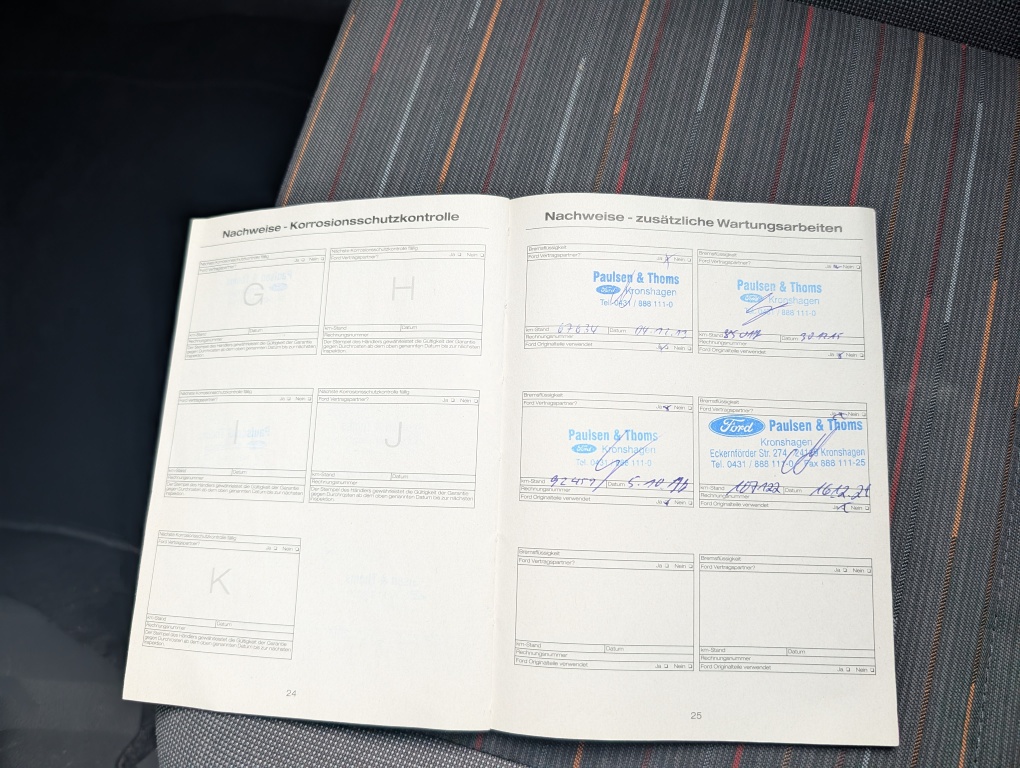 Nachweise - Korrosionsschutzkontrolle
Nächste Korrosionsschutzkontrolle fällig:
Ford Vertragspartner?
Ja Nein
G
km-Stand Datum
Rechnungsnummer
Der Stempel des Händlers gewährleistet die Gültigkeit der Garantie
gegen Durchrosten ab dem oben genannten Datum bis zur nächsten
Inspektion.
Nächste Korrosionsschutzkontrolle fällig:
Ford Vertragspartner? Ja Nein
H
km-Stand Datum
Rechnungsnummer
Der Stempel des Händlers gewährleistet die Gültigkeit der Garantie
gegen Durchrosten ab dem oben genannten Datum bis zur nächsten
Inspektion.
Nächste Korrosionsschutzkontrolle fällig:
Ford Vertragspartner? Ja Nein
I
km-Stand Datum
Rechnungsnummer
Der Stempel des Händlers gewährleistet die Gültigkeit der Garantie
gegen Durchrosten ab dem oben genannten Datum bis zur nächsten
Inspektion.
Nächste Korrosionsschutzkontrolle fällig:
Ford Vertragspartner? Ja Nein
J
km-Stand Datum
Rechnungsnummer
Der Stempel des Händlers gewährleistet die Gültigkeit der Garantie
gegen Durchrosten ab dem oben genannten Datum bis zur nächsten
Inspektion.
Nächste Korrosionsschutzkontrolle fällig:
Ford Vertragspartner? Ja Nein
K
km-Stand Datum
Rechnungsnummer
Der Stempel des Händlers gewährleistet die Gültigkeit der Garantie
gegen Durchrosten ab dem oben genannten Datum bis zur nächsten
Inspektion.
24
Nachweise - zusätzliche Wartungsarbeiten
Bremsflüssigkeit
Ford Vertragspartner? Ja Nein
Paulsen & Thoms
Ford Kronshagen
Tel. 0431 / 888 111-0
km-Stand 67634 Datum 04.12.13
Rechnungsnummer
Ford Originalteile verwendet Ja Nein
Bremsflüssigkeit
Ford Vertragspartner? Ja Nein
Paulsen & Thoms
Ford Kronshagen
/ 888 111-0
km-Stand Datum
Rechnungsnummer
Ford Originalteile verwendet Ja Nein
Bremsflüssigkeit
Ford Vertragspartner? Ja Nein
Paulsen & Thoms
Ford Kronshagen
Tel. 0431 / 888 111-0
km-Stand 92451 Datum 5.10
Rechnungsnummer
Ford Originalteile verwendet Ja Nein
Bremsflüssigkeit
Ford Vertragspartner? Ja Nein
Ford Paulsen & Thoms
Kronshagen
Eckernförder Str. 274, 24119 Kronshagen
Tel. 0431 / 888 111-0 Fax 888 111-25
km-Stand 107122 Datum 16.12.21
Rechnungsnummer
Ford Originalteile verwendet Ja Nein
Bremsflüssigkeit
Ford Vertragspartner? Ja Nein
km-Stand Datum
Rechnungsnummer
Ford Originalteile verwendet Ja Nein
Bremsflüssigkeit
Ford Vertragspartner? Ja Nein
km-Stand Datum
Rechnungsnummer
Ford Originalteile verwendet Ja Nein
25